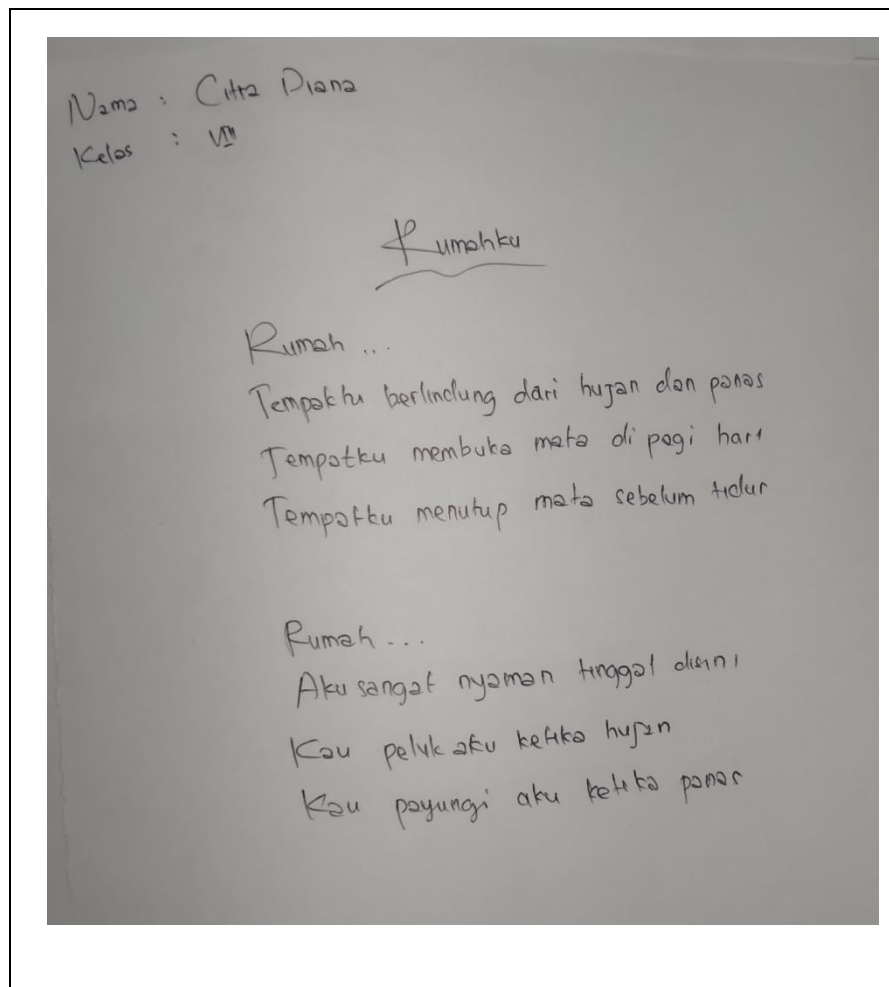 Nama : Citra Diana
Kelas : VIII
Rumahku
Rumah ...
Tempatku berlindung dari hujan dan panas
Tempatku membuka mata di pagi hari
Tempatku menutup mata sebelum tidur
Rumah ...
Aku sangat nyaman tinggal disini
Kau peluk aku ketika hujan
Kau payungi aku ketika panas